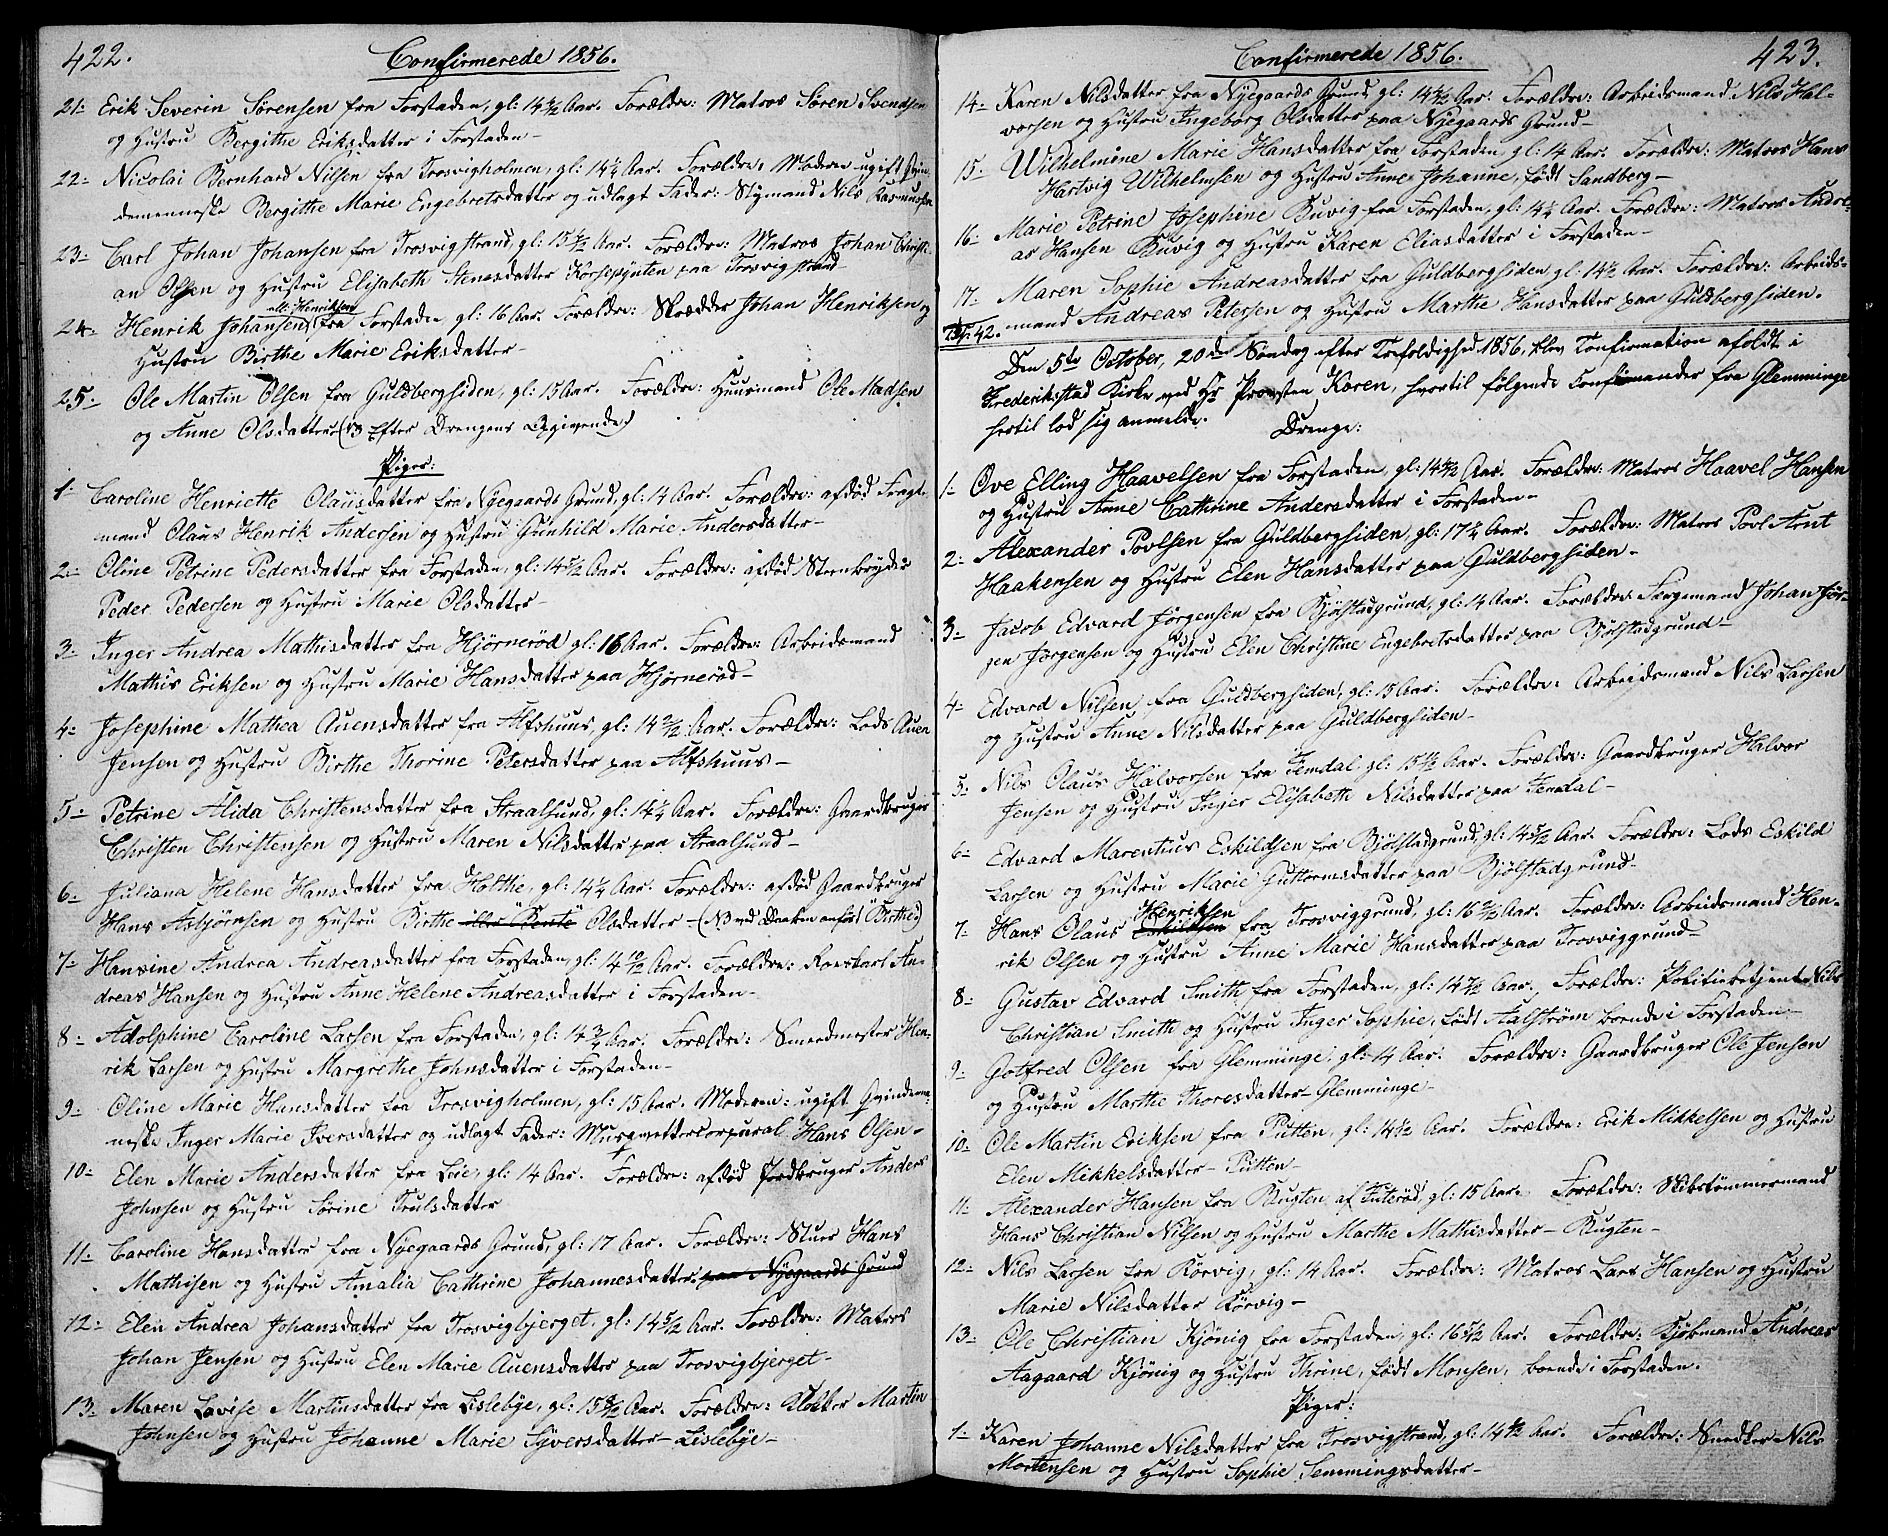 422.
Confirmerede 1856.
21- Erik Severin Sørensen fra Forstaden, gl: 14 Aar. Forældre: Matros Søren Svendsen
og Hustru Bergithe Eriksdatter i Forstaden-
22- Nicolai Bernhard Nilsen fra Trosvigholmen, gl: 14¼ Aar. Forældre: Moderen ugift Qvin-
demenneske Bergithe Marie Engebretsdatter og udlagt Fader: Styrmand Nils Rasmussen
23- Carl Johan Johansen fra Trosvigstrand, gl: 15 Aar. Forældre: Matros Johan Christi-
an Olsen og Hustru Elisabeth Stenersdatter Korsepynten paa Trosvigstrand-
ell: Henriksen
24- Henrik Johansen fra Forstaden gl: 16 Aar. Forældre: Skrædder Johan Henriksen og
Hustru Birthe Marie Eriksdatter-
25- Ole Martin Olsen fra Guldbergsiden, gl: 15 Aar. Forældre: Huusmand Ole Madsen
og Anne Olsdatter. (NB Efter Drengens Opgivende)
Piger:
1- Caroline Henriette Olausdatter fra Nyegaards Grund, gl: 14 Aar. Forældre: afdød Fragt-
mand Olaus Henrik Andersen og Hustru Gunhild Marie Andersdatter-
2- Oline Petrine Pedersdatter fra Forstaden, gl: 14 5/12 Aar. Forældre: afdød Steenbryder
Peder Pedersen og Hustru Marie Olsdatter-
3- Inger Andrea Mathisdatter fra Hjørnerød gl: 16 Aar. Forældre: Arbeidsmand
Mathis Eriksen og Hustru Marie Hansdatter paa Hjørnerød-
4- Josephine Mathea Auensdatter fra Alfshuus, gl: 14 Aar. Forældre: Lods Auen
Jensen og Hustru Birthe Thorine Petersdatter paa Alfshuus-
5- Petrine Alida Christensdatter fra Straalsund, gl: 14¼ Aar. Forældre: Gaardbruger
Christen Christensen og Hustru Maren Nilsdatter paa Straalsund-
6- Juliana Helene Hansdatter fra Holthe, gl: 14¼ Aar. Forældre: afdød Gaardbruger
Hans Asbjørnsen og Hustru Birthe eller "Bente" Olsdatter- (NB ved Daaben anført "Birthe")
7- Hansine Andrea Andreasdatter fra Forstaden, gl: 14 Aar. Forældre: Roerskarl An-
dreas Hansen og Hustru Anne Helene Andreasdatter i Forstaden-
8- Adolphine Caroline Larsen fra Forstaden, gl: 14¾ Aar. Forældre: Smedmester Hen-
rik Larsen og Hustru Margrethe Johnsdatter i Forstaden-
9- Oline Marie Hansdatter fra Trosvigholmen, gl: 15 Aar. Moderen: ugift Qvindemen-
neske Inger Marie Iversdatter og udlagt Fader: Musqvettercorporal Hans Olsen-
10- Elen Marie Andersdatter fra Løie, gl: 14 Aar. Forældre: afdød Jordbruger Anders
Johnsen og Hustru Sørine Trulsdatter
11- Caroline Hansdatter fra Nyegaards Grund, gl: 17 Aar. Forældre: Stuer Hans
Mathisen og Hustru Amalia Cathrine Johannesdatter. paa Nyegaards Grund
12- Elen Andrea Johansdatter fra Trosvigbjerget, gl: 14 5/12 Aar. Forældre: Matros
Johan Jensen og Hustru Elen Marie Auensdatter paa Trosvigbjerget-
13- Maren Lovise Martinsdatter fra Lislebye, gl: 15 Aar. Forældre: Klokker Martin
Johnsen og Hustru Johanne Marie Syversdatter- Lislebye-
423.
Confirmerede 1856.
14- Karen Nilsdatter fra Nyegaards Grund, gl: 14 Aar. Forældre: Arbeidsmand Nils Hal-
vorsen og Hustru Ingeborg Olsdatter paa Nyegaards Grund-
15- Wilhelmine Marie Hansdatter fra Forstaden, gl: 14 Aar. Forældre: Matros Hans
Hartvig Wilhelmsen og Hustru Anne Johanne, født Sandberg-
16- Marie Petrine Josephine Buvig fra Forstaden, gl: 14¼ Aar. Forældre: Matros Andre-
as Hansen Buvig og Hustru Karen Eliasdatter i Forstaden-
17- Maren Sophie Andreasdatter fra Guldbergsiden gl: 14½ Aar. Forældre: Arbeids-
42. mand Andreas Petersen og Hustru Marthe Hansdatter paa Guldbergsiden.
Den 5te October, 20de Søndag efter Trefoldighed 1856, blev Confirmation afholdt i
Frederiksstad Kirke ved Hr Provsten Koren, hvortil følgende Confirmander fra Glemminge
hertil lod sig anmelde.
Drenge:
1- Ove Elling Haavelsen fra Forstaden, gl: 14 Aar. Forældre: Matros Haavel Hansen
og Hustru Anne Cathrine Andersdatter i Forstaden-
2- Alexander Povlsen fra Guldbergsiden, gl: 17¼ Aar. Forældre: Matros Povl Arnt
Haakensen og Hustru Elen Hansdatter paa Guldbergsiden-
3- Jacob Edvard Jørgensen fra Bjølstadgrund, gl: 14 Aar. Forældre: Færgemand Johan Jør-
gen Jørgensen og Hustru Elen Christine Engebretsdatter paa Bjølstadgrund-
4- Edvard Nilsen fra Guldbergsiden, gl: 15 Aar. Forældre: Arbeidsmand Nils Larsen
og Hustru Anne Nilsdatter paa Guldbergsiden-
5- Nils Olaus Halvorsen fra Femdal gl: 15 Aar. Forældre: Gaardbruger Halvor
Jensen og Hustru Inger Elisabeth Nilsdatter paa Femdal-
6- Edvard Marentius Eskildsen fra Bjølstadgrund, gl: 14 5/12 Aar. Forældre: Lods Eskild
Larsen og Hustru Marie Guttormsdatter paa Bjølstadgrund-
Henriksen
7- Hans Olaus Eskildsen fra Trosviggrund, gl: 16 Aar. Forældre: Arbeidsmand Hen-
rik Olsen og Hustru Anne Marie Hansdatter paa Trosviggrund-
8- Gustav Edvard Smith fra Forstaden, gl: 14 7/12 Aar. Forældre: Politiebetjent Nils
Christian Smith og Hustru Inger Sophie, født Aalstrøm boende i Forstaden-
9- Gotfred Olsen fra Glemminge, gl: 14 Aar. Forældre: Gaardbruger Ole Jensen
og Hustru Marthe Thoresdatter- Glemminge-
10- Ole Martin Eriksen fra Putten, gl: 14½ Aar. Forældre: Erik Mikkelsen og Hustru
Elen Mikkelsdatter- Putten-
11- Alexander Hansen fra Rugten af Tuterød, gl: 15 Aar. Forældre: Skibstømmermand
Hans Christian Nilsen og Hustru Marthe Mathisdatter- Rugten-
12- Nils Larsen fra Rørvig, gl: 14 Aar. Forældre: Matros Lars Hansen og Hustru
Marie Nilsdatter Rørvig-
13- Ole Christian Kjønig fra Forstaden, gl: 16 Aar. Forældre: Kjøbmand Andreas
Aagaard Kjønig og Hustru Thrine, født Monsen, boende i Forstaden.
Piger:
1- Karen Johanne Nilsdatter fra Trosvigstrand, gl: 14 Aar. Forældre: Snedker Nils
Mortensen og Hustru Sophie Semmingsdatter-